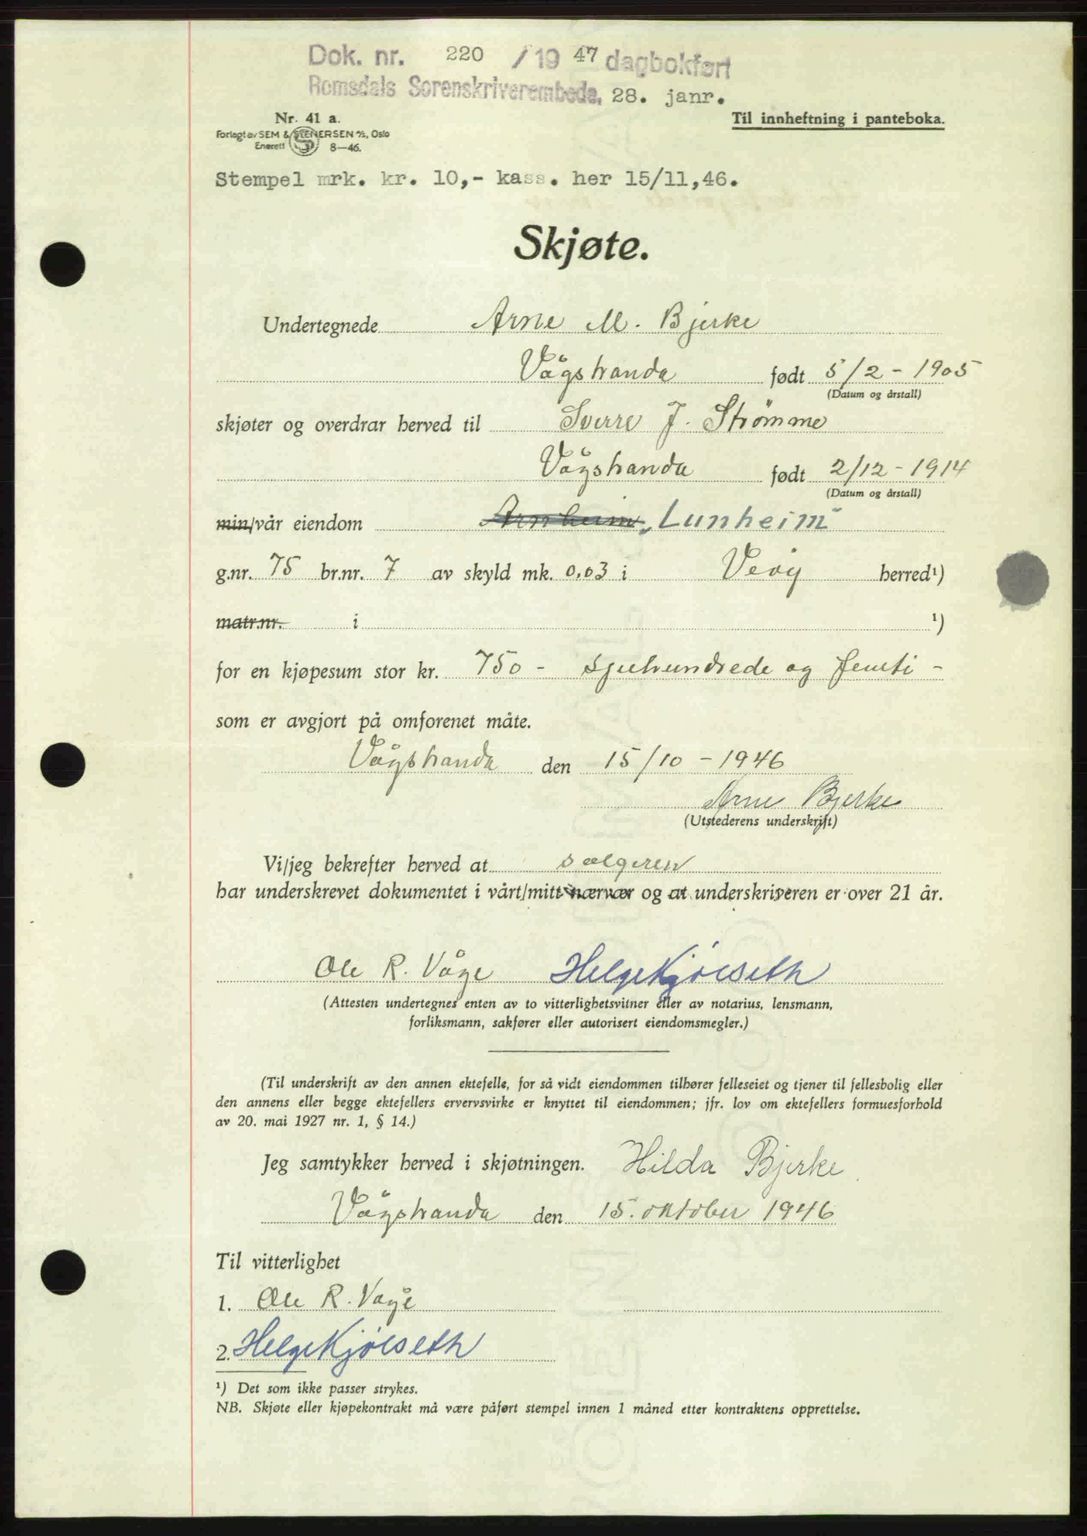 Dok. nr. 220 / 19 47 dagbokført
Romsdals Sorenskriverembede, 28. janr.
Nr. 41 a.
Til innheftning i panteboka.
Forlagt av SEM & STENERSEN A/S, Oslo
Enerett 8—46.
Stempel mrk. kr. 10,- kass. her 15/11,46.
Skjøte.
Undertegnede Arne M. Bjerke
Vågstranda født 5/2 - 1905
(Datum og årstall)
skjøter og overdrar herved til Sverre J. Strømme
Vågstranda født 2/12 - 1914
(Datum og årstall)
min/vår eiendom Arnheim „Lunheim"
g.nr. 75 br.nr. 7 av skyld mk. 0,03 i Veøy herred¹)
matr.nr. i ¹)
for en kjøpesum stor kr. 750 - sjuhundrede og femti -
som er avgjort på omforenet måte.
Vågstranda den 15/10 - 1946
Arne Bjerke
(Utstederens underskrift)
Vi/jeg bekrefter herved at sælgeren
har underskrevet dokumentet i vårt/mitt nærvær og at underskriveren er over 21 år.
Ole R. Våge Helge Kjølseth
(Attesten undertegnes enten av to vitterlighetsvitner eller av notarius, lensmann,
forliksmann, sakfører eller autorisert eiendomsmegler.)
(Til underskrift av den annen ektefelle, for så vidt eiendommen tilhører felleseiet og tjener til fellesbolig eller
den annens eller begge ektefellers ervervsvirke er knyttet til eiendommen; jfr. lov om ektefellers formuesforhold
av 20. mai 1927 nr. 1, § 14.)
Jeg samtykker herved i skjøtningen. Hilda Bjerke
Vågstranda den 15. oktober 1946
Til vitterlighet
1. Ole R. Våge
2. Helge Kjølseth
¹) Det som ikke passer strykes.
NB. Skjøte eller kjøpekontrakt må være påført stempel innen 1 måned etter kontraktens opprettelse.